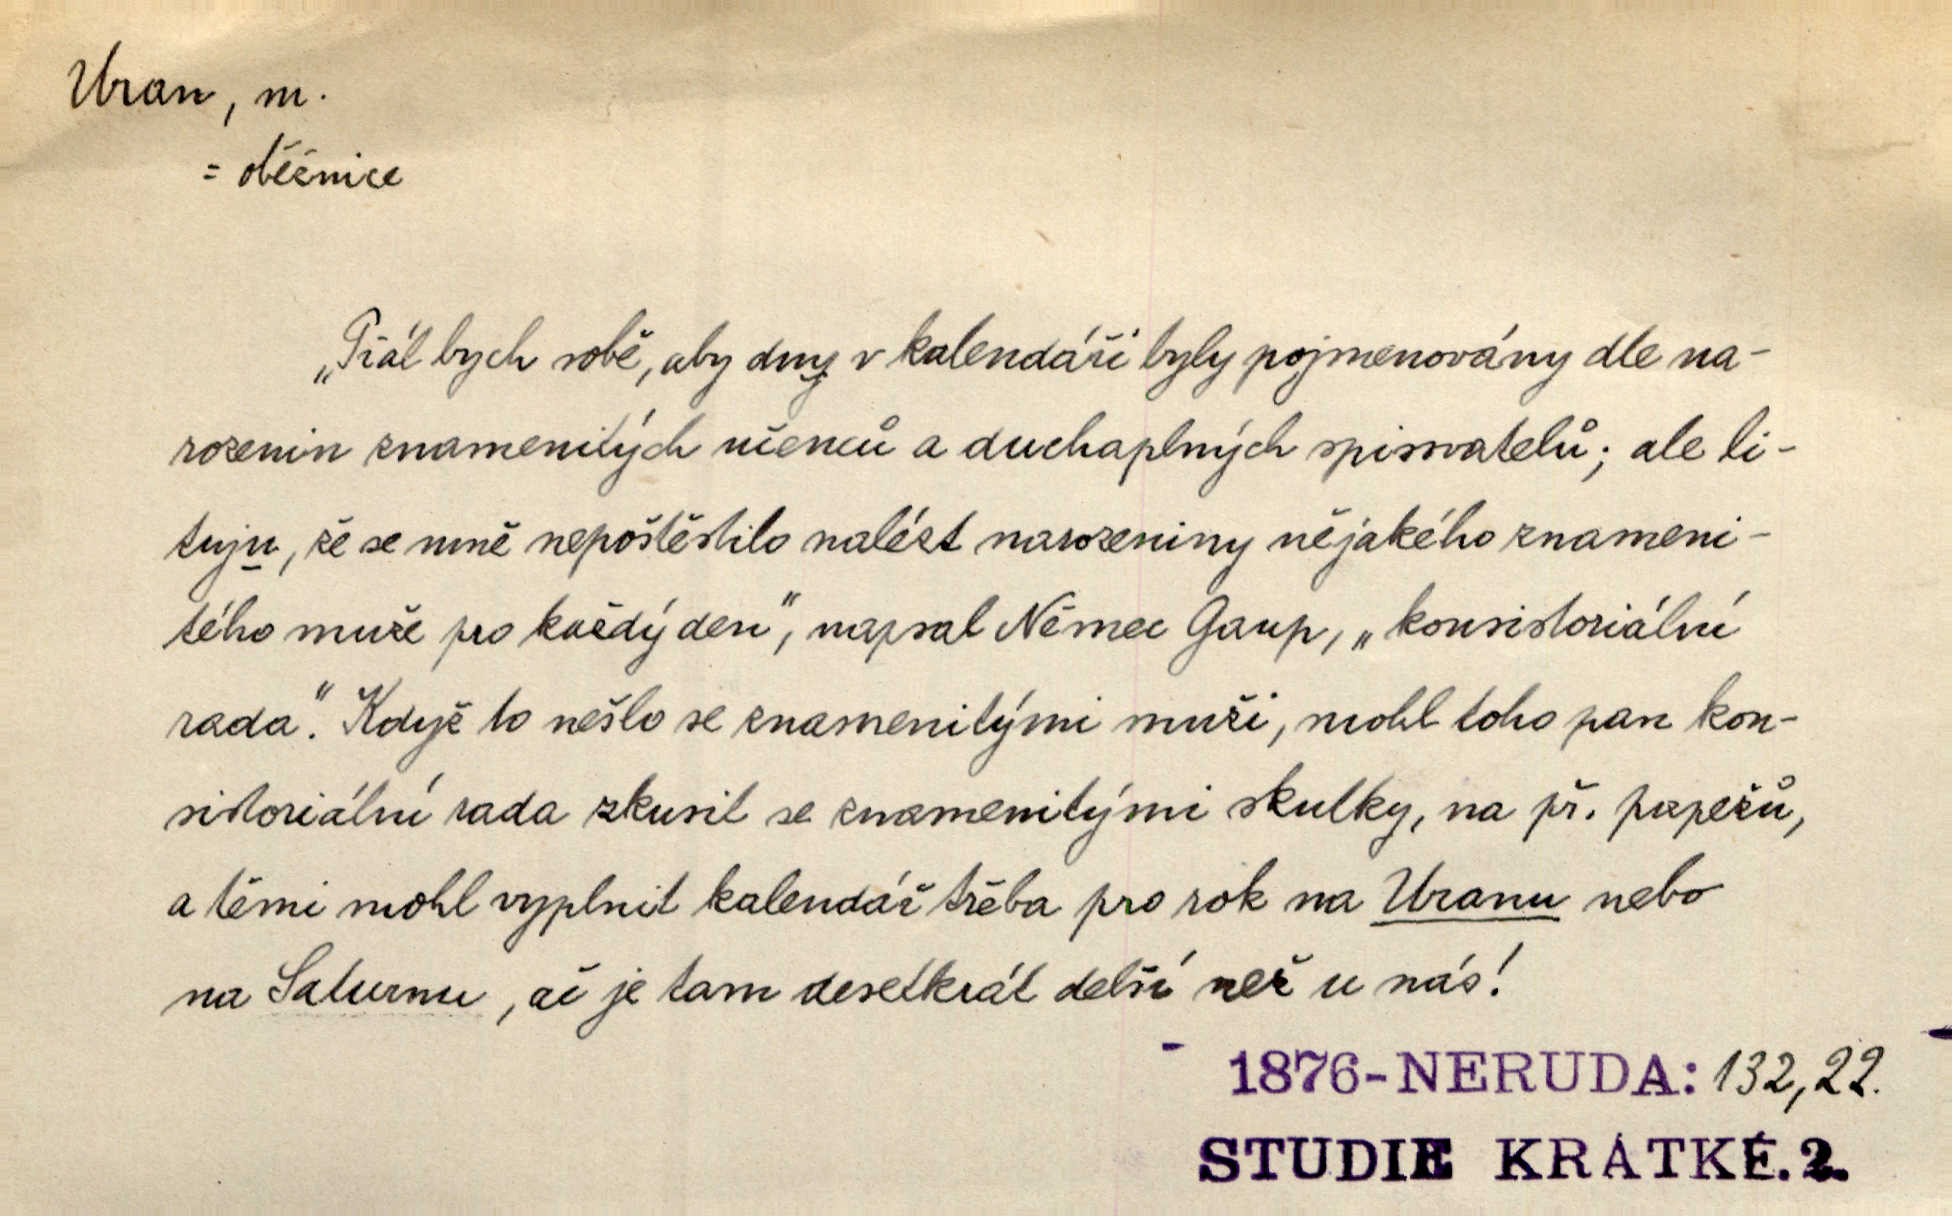 Uran, m.
= oběžnice
„Přál bych sobě, aby dny v kalendáři byly pojmenovány dle na-
rozenin znamenitých učenců a duchaplných spisovatelů; ale li-
tuju, že se mně nepoštěstilo nalézt narozeniny nějakého znameni-
tého muže pro každý den", napsal Němec Gaup, „konsistoriální
rada". Když to nešlo se znamenitými muži, mohl toho pan kon-
sistoriální rada zkusit se znamenitými skutky, na př. papežů,
a těmi mohl vyplnit kalendář třeba pro rok na Uranu nebo
na Saturnu, ač je tam desetkrát delší než u nás!
1876-NERUDA: 132,22.
STUDIE KRÁTKÉ.2.